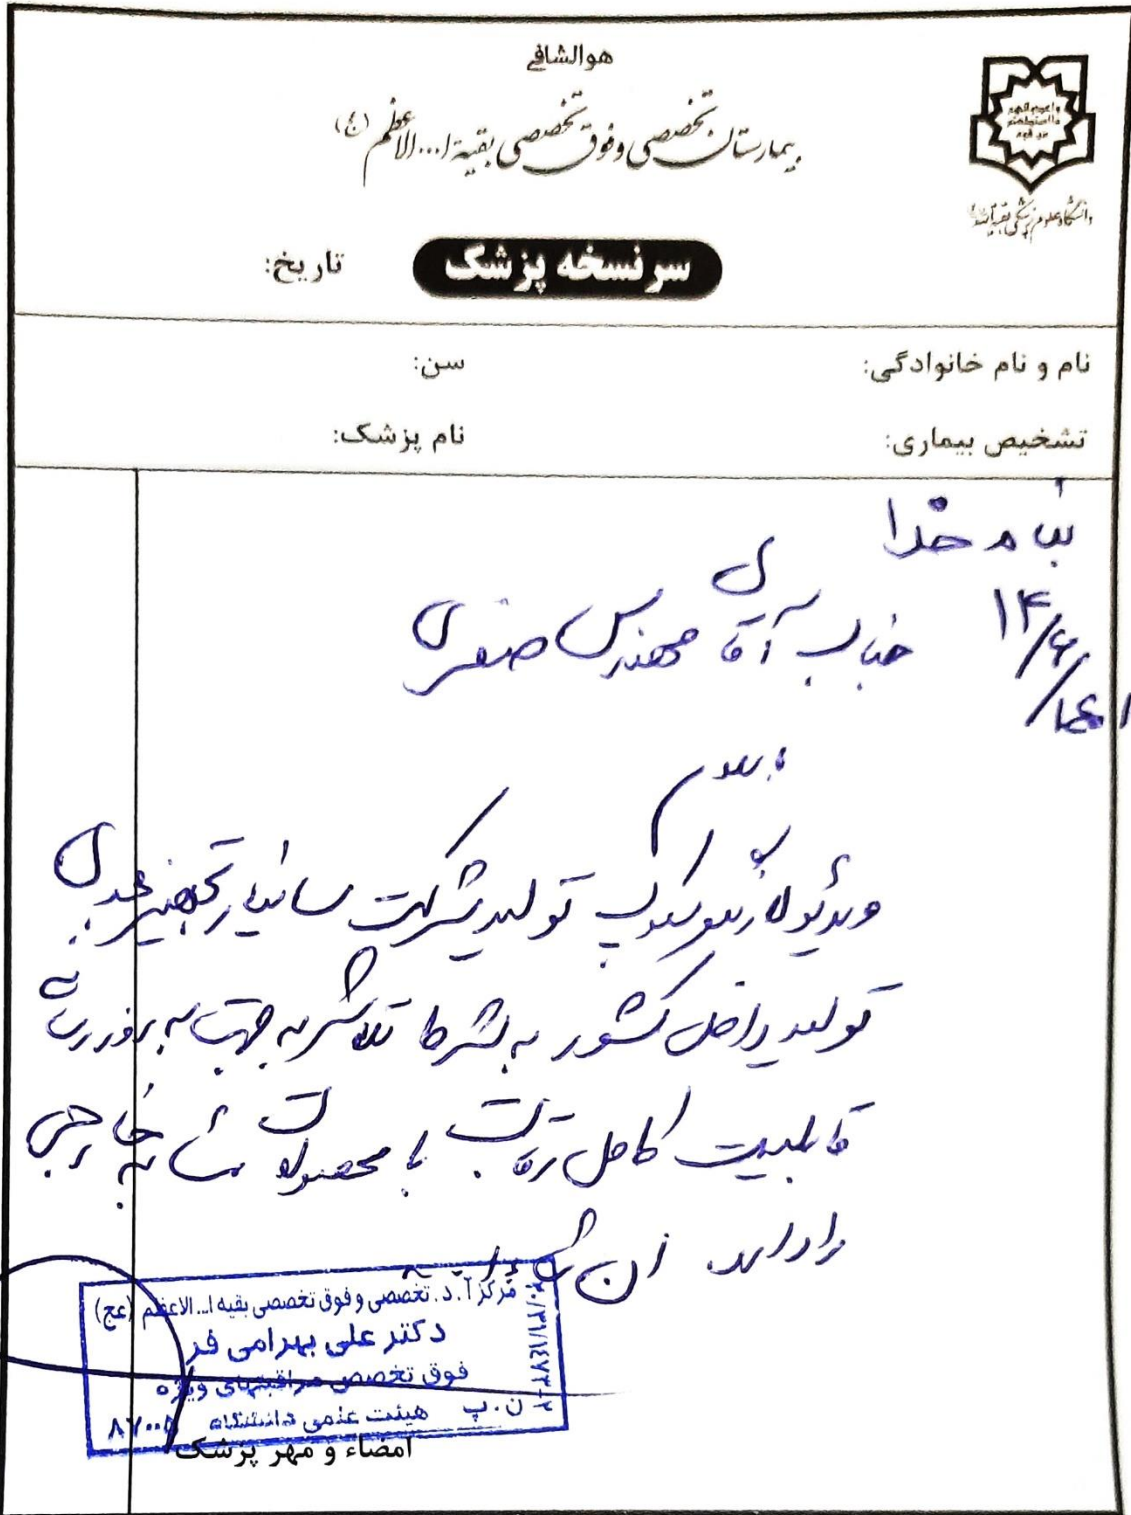 هوالشافی
بیمارستان تخصصی و فوق تخصصی بقیة ا... الاعظم (عج)
دانشگاه علوم پزشکی بقیة الله
سرنسخه پزشک
تاریخ:
نام و نام خانوادگی:
سن:
تشخیص بیماری:
نام پزشک:
بنام خدا
جناب آقای مهندس صفری
۱۴/۶/
با سلام
ویدئو لارنگوسکوپ تولید شرکت تجهیز
تولید داخل کشور به شرط تلاش به جهت به روز رسانی
قابلیت کامل رقابت با محصولات مشابه خارجی
را دارد. ان شاءالله
مرکز آ.د. تخصصی و فوق تخصصی بقیه ا... الاعظم (عج)
دکتر علی بهرامی فر
فوق تخصص مراقبتهای ویژه
هیئت علمی دانشگاه
ن.پ ۸۷۰۰۵
امضاء و مهر پزشک